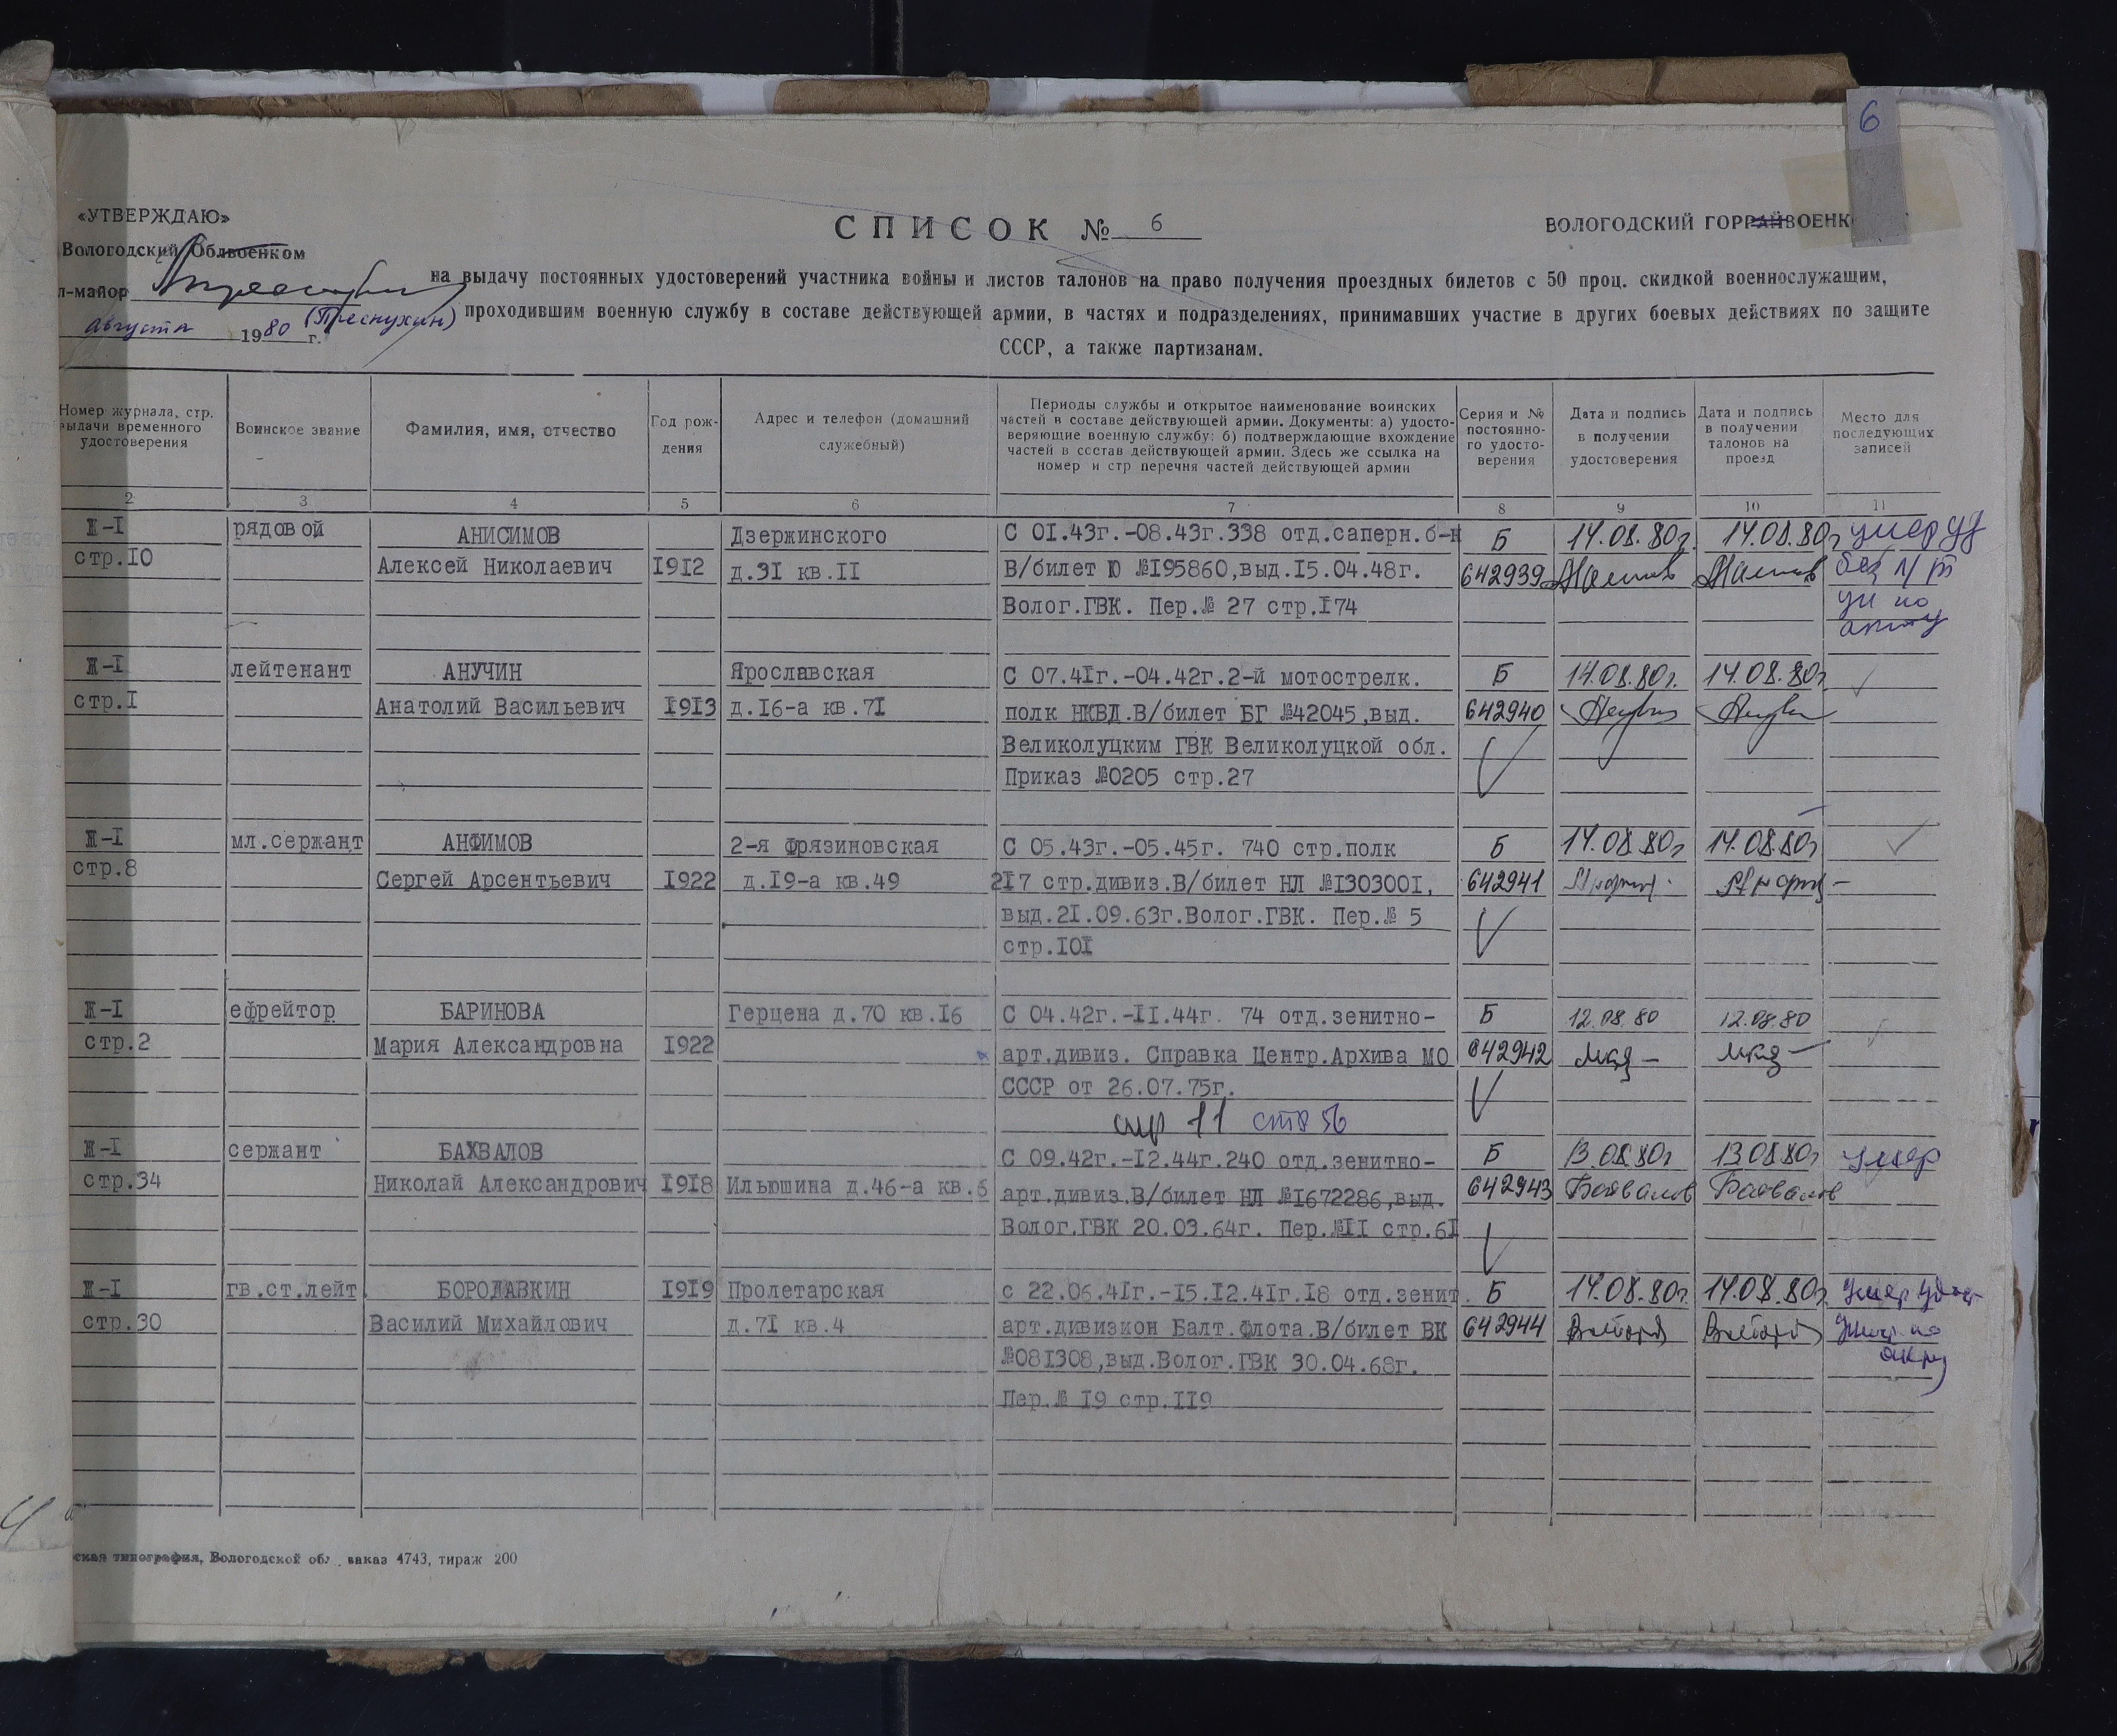 6
«УТВЕРЖДАЮ»
СПИСОК № 6
ВОЛОГОДСКИЙ ГОРРАЙВОЕНК
Вологодский Облвоенком
на выдачу постоянных удостоверений участника войны и листов талонов на право получения проездных билетов с 50 проц. скидкой военнослужащим,
л-майор
(Преснухин)
проходившим военную службу в составе действующей армии, в частях и подразделениях, принимавших участие в других боевых действиях по защите
августа 1980 г.
СССР, а также партизанам.
Номер журнала, стр. выдачи временного удостоверения
Воинское звание
Фамилия, имя, отчество
Год рождения
Адрес и телефон (домашний служебный)
Периоды службы и открытое наименование воинских
частей в составе действующей армии. Документы: а) удосто-
веряющие военную службу; б) подтверждающие вхождение
частей в состав действующей армии. Здесь же ссылка на
номер и стр перечня частей действующей армии
Серия и № постоянно-го удосто-верения
Дата и подпись в получении удостоверения
Дата и подпись в получении талонов на проезд
Место для последующих записей
2 3 4 5 6 7 8 9 10 11
Ж-I рядовой АНИСИМОВ Дзержинского С 01.43г.-08.43г.338 отд.саперн.б-н Б 14.08.80г. 14.08.80г умер уд
стр.IO Алексей Николаевич I9I2 д.3I кв.II В/билет Ю №I95860,выд.I5.04.48г. 642939 без
Волог.ГВК. Пер.№ 27 стр.I74 ун по
акту
Ж-I лейтенант АНУЧИН Ярославская С 07.4Iг.-04.42г.2-й мотострелк. Б 14.08.80г. 14.08.80г
стр.I Анатолий Васильевич I9I3 д.I6-а кв.7I полк НКВД.В/билет БГ №42045,выд. 642940
Великолуцким ГВК Великолуцкой обл.
Приказ №0205 стр.27
Ж-I мл.сержант АНФИМОВ 2-я Фрязиновская С 05.43г.-05.45г. 740 стр.полк Б 14.08.80г 14.08.80г
стр.8 Сергей Арсентьевич I922 д.I9-а кв.49 2I7 стр.дивиз.В/билет НЛ №I30300I, 642941
выд.2I.09.63г.Волог.ГВК. Пер.№ 5
стр.IOI
Ж-I ефрейтор БАРИНОВА Герцена д.70 кв.I6 С 04.42г.-II.44г. 74 отд.зенитно- Б 12.08.80 12.08.80
стр.2 Мария Александровна I922 арт.дивиз. Справка Центр.Архива МО 642942
СССР от 26.07.75г.
11 стр 56
Ж-I сержант БАХВАЛОВ С 09.42г.-I2.44г.240 отд.зенитно- Б 13.08.80г 13.08.80г умер
стр.34 Николай Александрович I9I8 Ильюшина д.46-а кв.6 арт.дивиз.В/билет НЛ №I672286,выд. 642943 Бахвалов Бахвалов
Волог.ГВК 20.03.64г. Пер.№II стр.6I
Ж-I гв.ст.лейт. БОРОДАВКИН I9I9 Пролетарская с 22.06.4Iг.-I5.I2.4Iг.I8 отд.зенит. Б 14.08.80г. 14.08.80г умер
стр.30 Василий Михайлович д.7I кв.4 арт.дивизион Балт.флота.В/билет ВК 642944
№08I308,выд.Волог.ГВК 30.04.68г.
Пер.№ I9 стр.II9
ская типография, Вологодской обл., заказ 4743, тираж 200